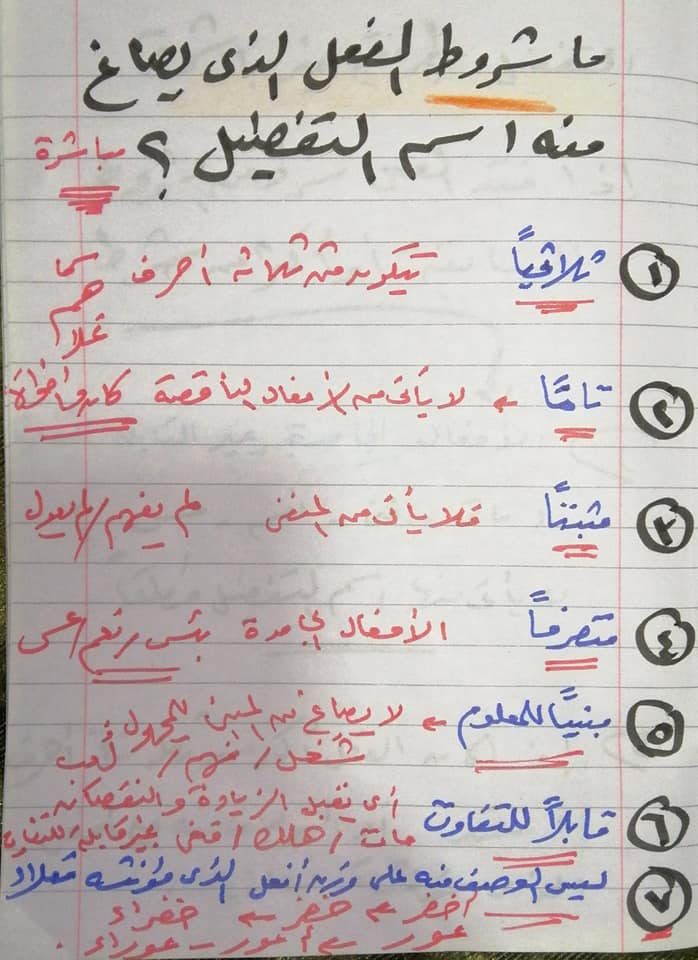 ما شروط الفعل الذى يصاغ
منه اسم التفضيل ؟ مباشرة
١ ثلاثياً يتكون من ثلاثة أحرف سما
فهم
علا
٢ تامًا ← لا يأتى من الأفعال الناقصة كان وأخواتها
٣ مثبتًا فلا يأتى من المنفى لم يفهم / لم يعدل
٤ متصرفاً الأفعال الجامدة بئس / نعم / عسى
٥ مبنيًا للمعلوم ← لا يصاغ من المبنى للمجهول
شُغل / فُهم / لُعب
٦ قابلاً للتفاوت أى تقبل الزيادة والنقصان
مات / هلك / غير قابلة للتفاوت
٧ ليس الوصف منه على وزن أفعل الذى مؤنثه فعلاء
أخضر ← خضر ← خضراء
عور ← أعور - عوراء .